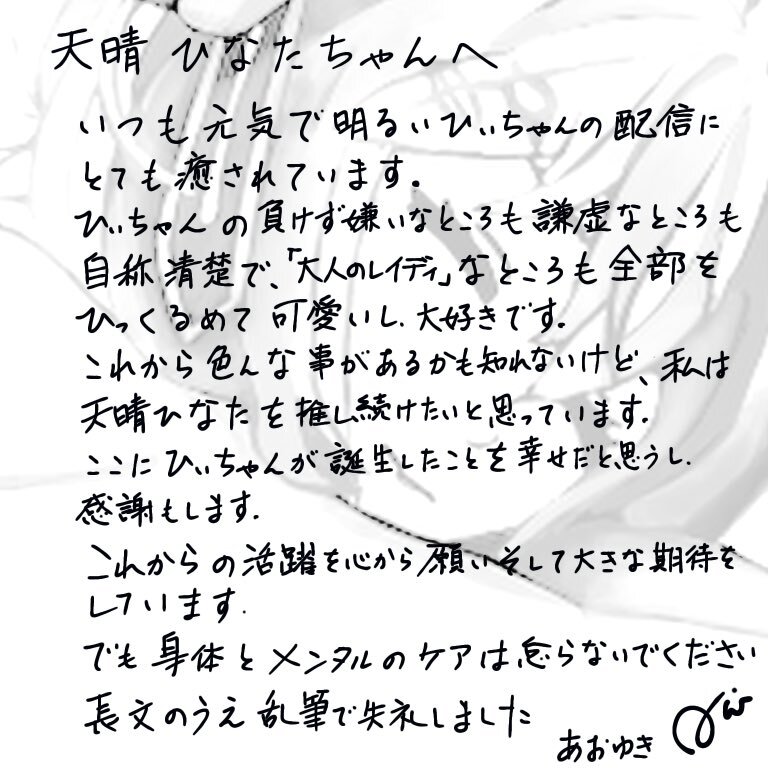 天晴 ひなたちゃんへ
いつも元気で明るいひぃちゃんの配信に
とても癒されています。
ひぃちゃんの負けず嫌いなところも謙虚なところも
自称清楚で、「大人のレイディ」なところも全部を
ひっくるめて可愛いし、大好きです。
これから色んな事があるかも知れないけど、私は
天晴ひなたを推し続けたいと思っています。
ここにひぃちゃんが誕生したことを幸せだと思うし、
感謝もします。
これからの活躍を心から願いそして大きな期待を
しています.
でも身体とメンタルのケアは怠らないでください
長文のうえ乱筆で失礼しました
あおゆき